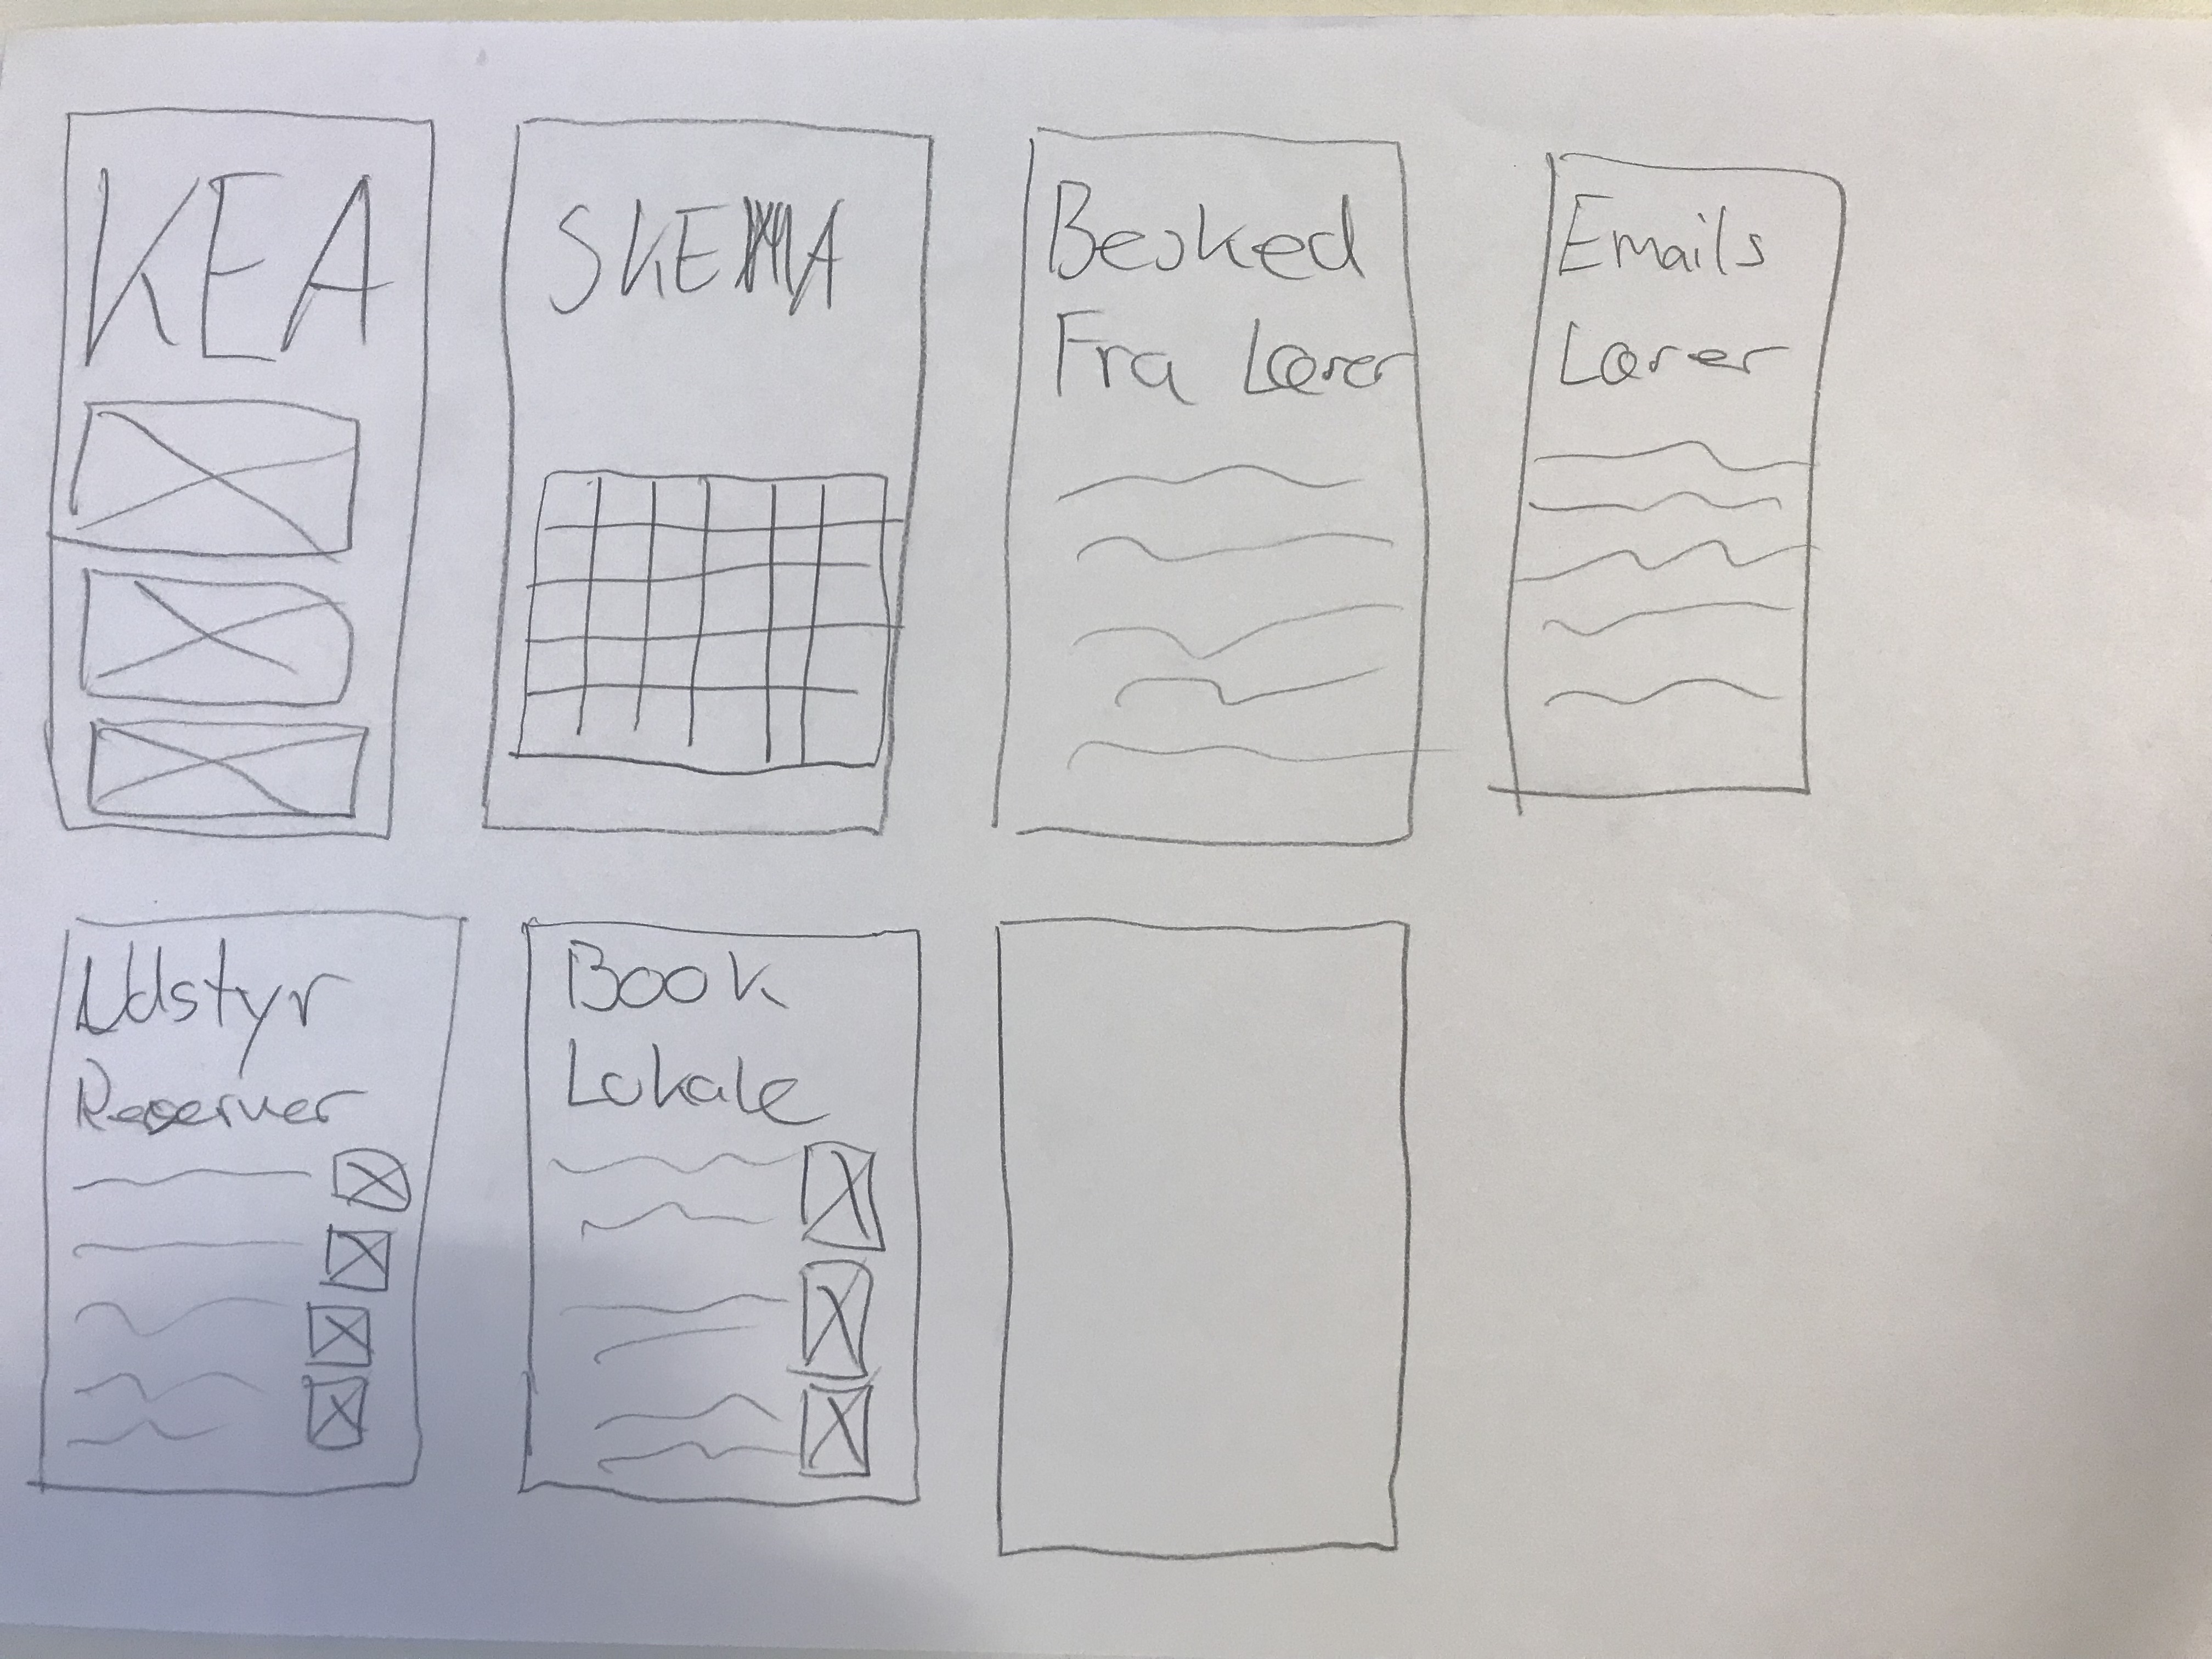 KEA
SKEMA
Besked
Fra Lærer
Emails
Lærer
Udstyr
Reserver
Book
Lokale